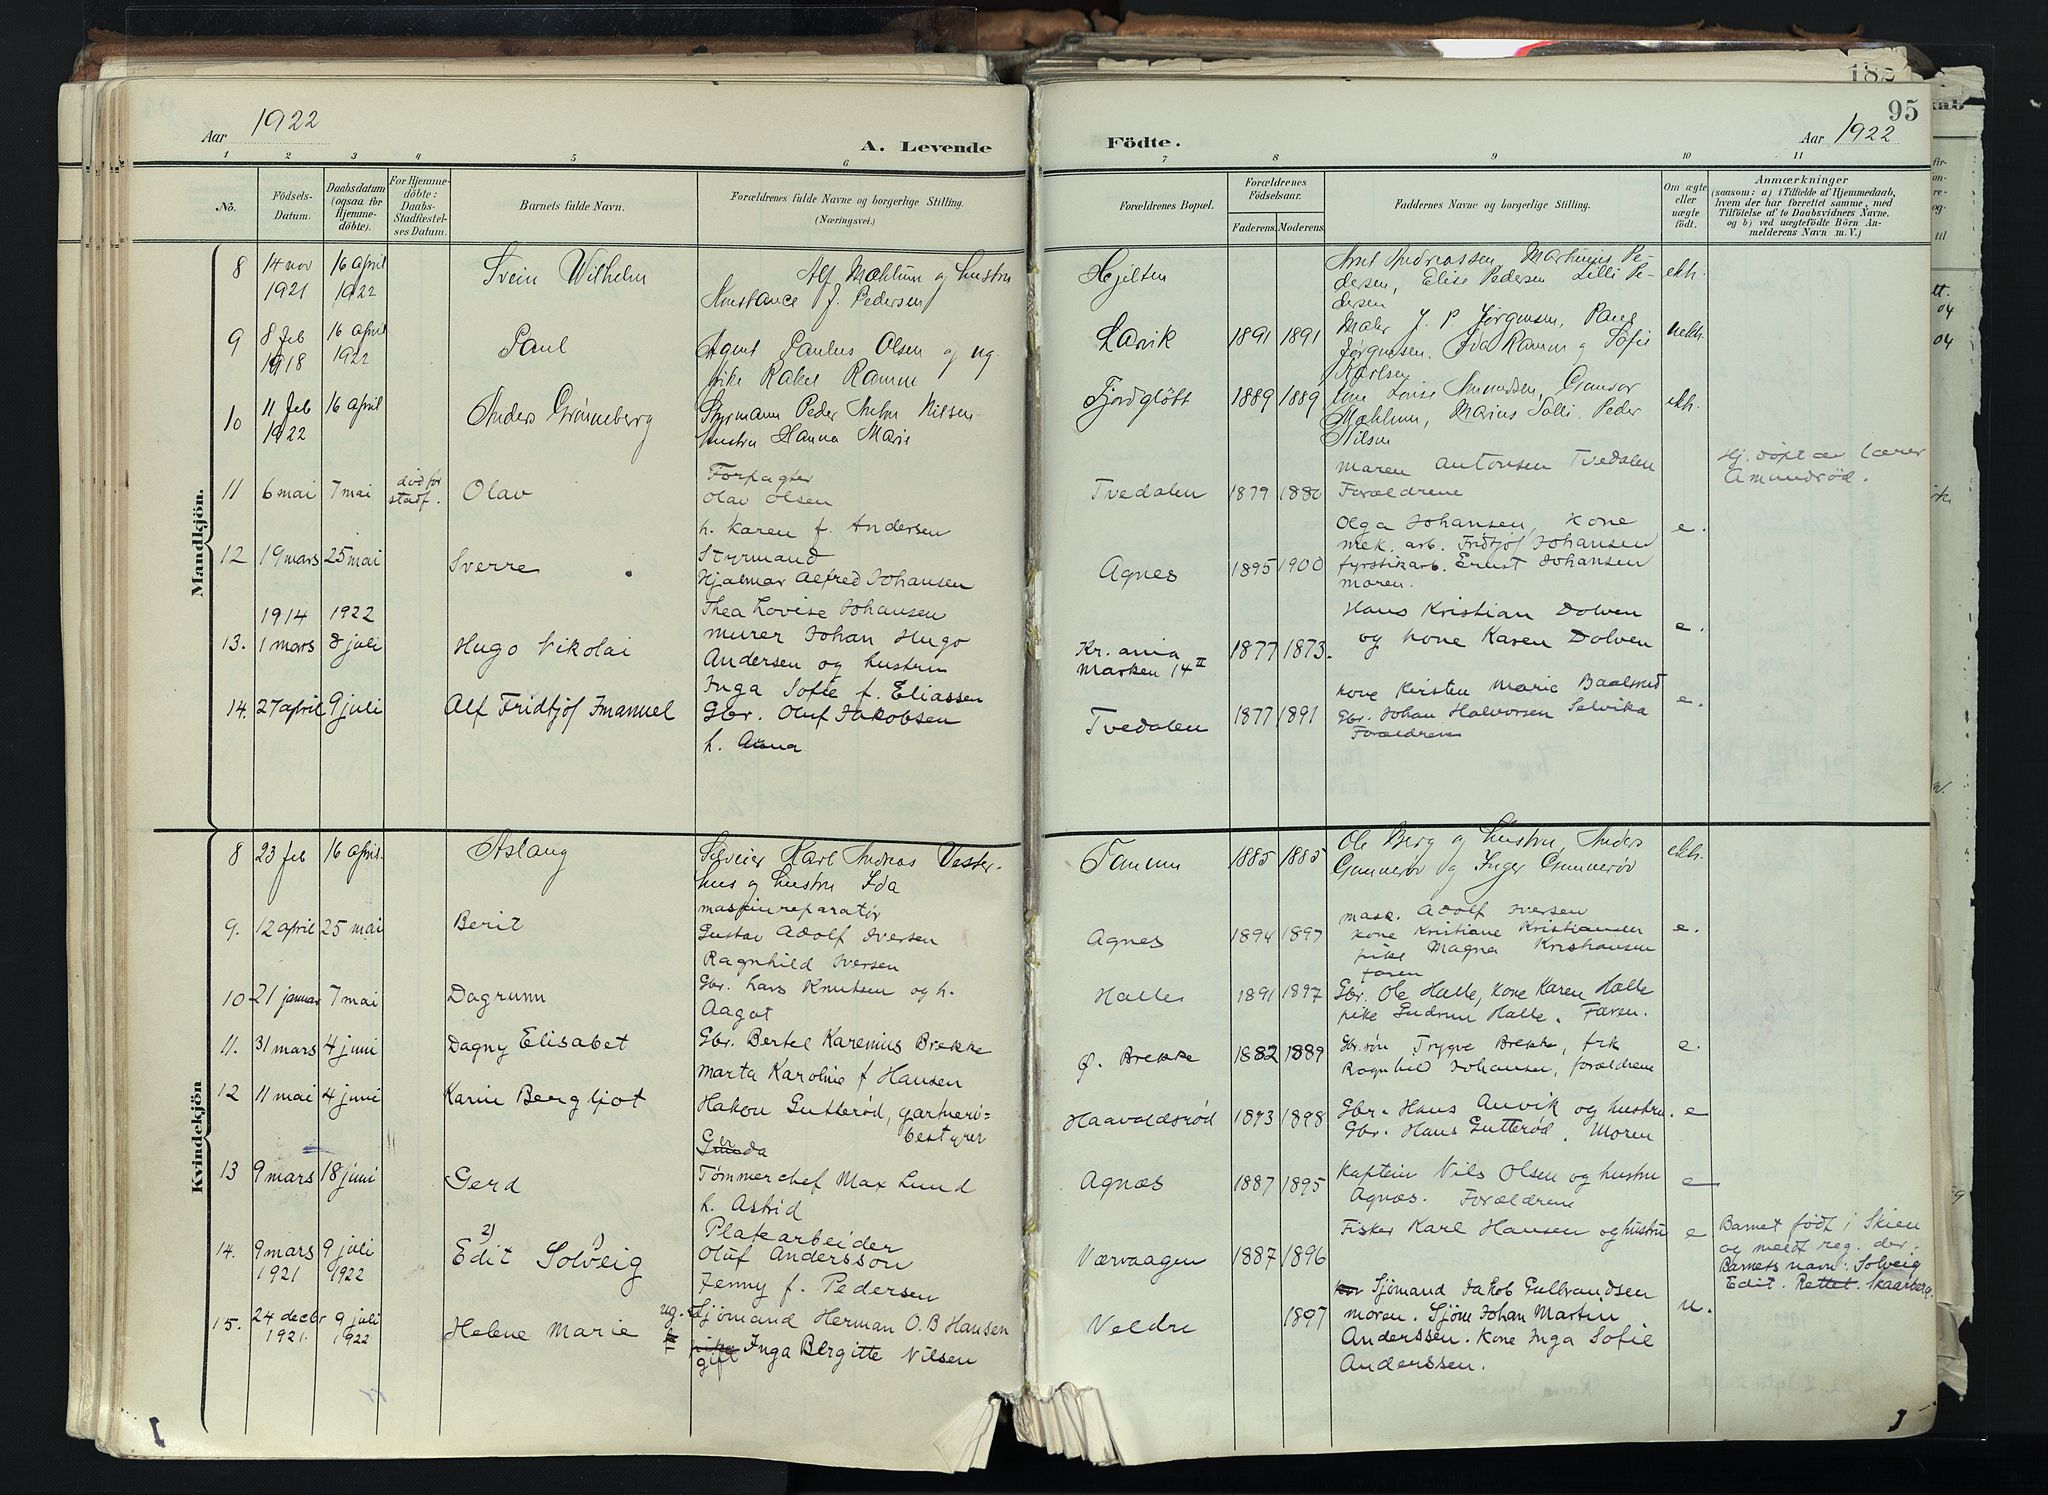 Aar 1922
A. Levende
1 2 3 4 5 6
No.
Födsels-Datum.
Daabsdatum (ogsaa for Hjemme-döbte).
For Hjemme-döbte: Daabs-Stadfæstel-ses Datum.
Barnets fulde Navn.
Forældrenes fulde Navne og borgerlige Stilling.
(Næringsvei.)
Mandkjön.
8 14 nov 16 april Svein Wilhelm Alf Mæhlum og hustru
1921 1922 Konstance f. Pedersen
9 8 feb 16 april Paul Agent Paulus Olsen og ug.
1918 1922 pike Rakel Ramm
10 11 feb 16 april Anders Grønneberg Styrmann Peder Anton Nilsen
1922 hustru Hanna Marie
11 6 mai 7 mai død før stadf. Olav Forpagter
Olav Olsen
h. Karen f. Andersen
12 19 mars 25 mai Sverre Styrmand
Hjalmar Alfred Johansen
Thea Lovise Johansen
1914 1922
13. 1 mars 8 juli Hugo Nikolai murer Johan Hugo
Andersen og hustru
Inga Sofie f. Eliassen
14. 27 april 9 juli Alf Fridtjof Imanuel Gbr. Oluf Jakobsen
h. Anna
Kvindekjön
8 23 feb 16 april. Aslaug Sveiser Karl Andreas Vester-
hus og hustru Ida
9. 12 april 25 mai Berit maskinreparatør
Gustav Adolf Iversen
Ragnhild Iversen
10 21 januar 7 mai Dagrunn Gbr. Lars Knutsen og h.
Aagot
11. 31 mars 4 juni Dagny Elisabet Gbr. Bertel Karenius Brekke
Marta Karoline f Hansen
12 11 mai 4 juni Karin Bergljot Hakon Gutterød, gartneri=
bestyrer
13 9 mars 18 juni Gerd Tømmerchef Max Lund
h. Astrid
14. 9 mars 9 juli 2) 1) Platearbeider
1921 1922 Edit Solveig Oluf Andersson
Jenny f. Pedersen
15. 24 decbr 9 juli Helene Marie ug. Sjømand Herman O.B Hansen
1921. 1922 pike gift Inga Bergitte Nilsen
182
95
Födte.
Aar 1922
7 8 9 10 11
Forældrenes Bopæl.
Forældrenes Födselsaar.
Faderens. Moderens.
Faddernes Navne og borgerlige Stilling.
Om ægte eller uægte födt.
Anmærkninger
(saasom: a) i Tilfælde af Hjemmedaab,
hvem der har forrettet samme, med
Tilföielse af to Daabsvidners Navne,
og b) ved uægtefödte Börn An-
melderens Navn m. V.)
Hjelten Arnt Andreassen, Martinius Pe- ekt.
dersen, Elise Pedersen Lilli Pe-
dersen
Larvik 1891 1891 J. P. Jørgensen, Paul uekt.
Jørgensen. Ida Ramm og Sofie
Karlsen
Fjordgløtt 1889 1889 Lovise Amundsen, Gunvor ekt.
Mæhlum, Marius Solli. Peder
Nilsen
Tvedalen 1879 1880 Maren Antonsen Tvedalen
Forældrene
Hj. døpt av lærer
Amundrød.
Olga Johansen, Kone e.
Agnes 1895 1900 mek. arb. Fridtjof Johansen
fyrstikarb. Ernst Johansen
moren.
Kr.ania Hans Kristian Dolven e.
Marken 14 II 1877 1873. og kone Karen Dolven
Tvedalen 1877 1891 Kone Kirsten Marie Baalsrud e.
Gbr. Johan Halvorsen Selvika
Forældrene
Tanum 1885 1885 Ole Berg og hustru, Anders ekt.
Gunnerød og Inger Gunnerød
Agnes 1894 1897 mask. Adolf Iversen e.
kone Kristiane Kristiansen
pike Magna Kristiansen
faren
Halle 1891 1897 Gbr. Ole Halle, kone Karen Halle
pike Gudrun Halle. Faren.
Ø. Brekke 1882 1889 Gbr.søn Trygve Brekke, frk e.
Ragnhild Johansen, forældrene
Haavaldsrød 1893 1898 Gbr. Hans Anvik og hustru. e
Gbr. Hans Gutterød. Moren
Agnæs 1887 1895 Kaptein Nils Olsen og hustru e
Agnæs. Forældrene
Værvaagen 1887 1896 Fisker Karl Hansen og hustru e
Barnet født i Skien
og meldt reg. der.
Barnets navn: Solveig
Edit. Rettet. Skaarberg.
Veldre 1897 Sjømand Jakob Gulbrandsen u.
moren. Sjøm Johan Martin
Anderssen. Kone Inga Sofie
Anderssen.